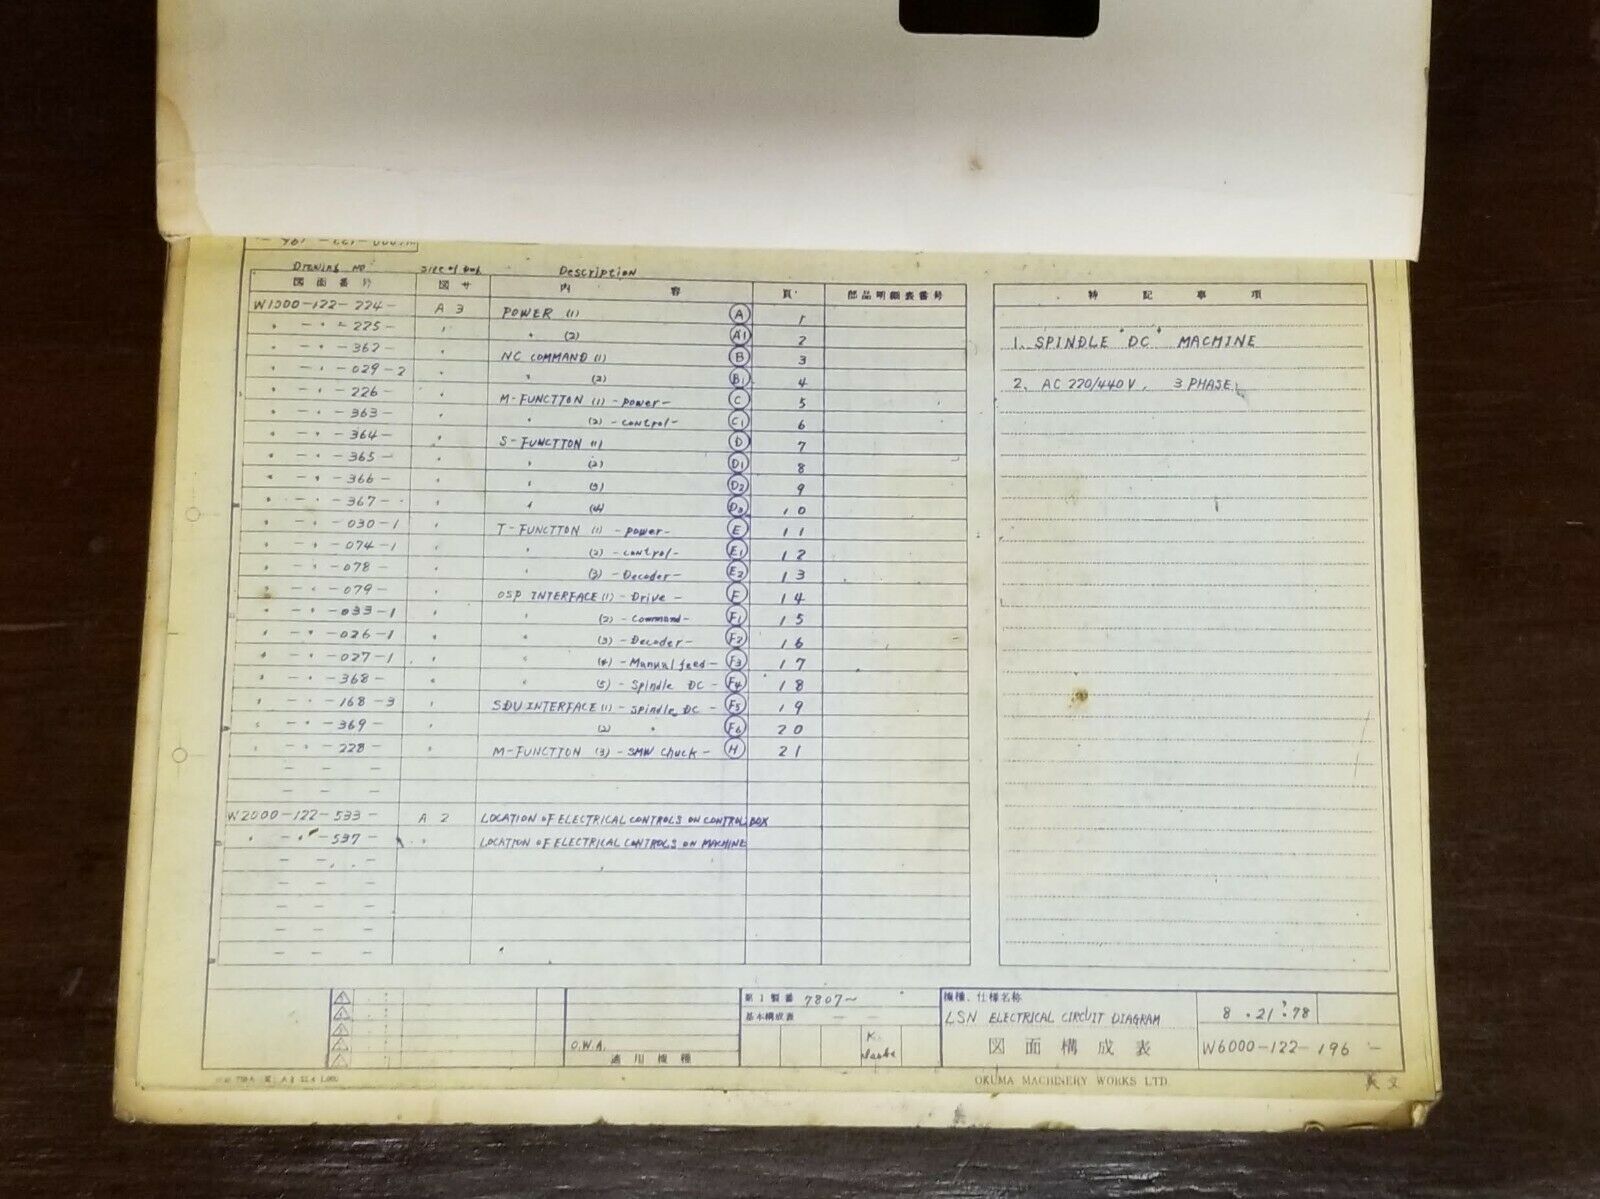 Drawing No Size of Description
図面番号 図サ 内容 頁 部品明細表番号
W1000-122-224- A3 POWER (1) A 1
〃 - 〃 - 225 - 〃 〃 (2) A1 2
〃 - 〃 - 362 - 〃 NC COMMAND (1) B 3
〃 - 〃 - 029 - 2 〃 〃 (2) B1 4
〃 - 〃 - 226 - 〃 M-FUNCTTON (1) - power - C 5
〃 - 〃 - 363 - 〃 〃 (2) - control - C1 6
〃 - 〃 - 364 - 〃 S-FUNCTTON (1) D 7
〃 - 〃 - 365 - 〃 〃 (2) D1 8
〃 - 〃 - 366 - 〃 〃 (3) D2 9
〃 - 〃 - 367 - 〃 〃 (4) D3 10
〃 - 〃 - 030 - 1 〃 T-FUNCTTON (1) - power - E 11
〃 - 〃 - 074 - 1 〃 〃 (2) - control - E1 12
〃 - 〃 - 078 - 〃 〃 (3) - Decoder - E2 13
〃 - 〃 - 079 - 〃 OSP INTERFACE (1) - Drive - F 14
〃 - 〃 - 033 - 1 〃 〃 (2) - Command - F1 15
〃 - 〃 - 026 - 1 〃 〃 (3) - Decoder - F2 16
〃 - 〃 - 027 - 1 〃 〃 (4) - Manual feed - F3 17
〃 - 〃 - 368 - 〃 〃 (5) - Spindle DC - F4 18
〃 - 〃 - 168 - 3 〃 SDU INTERFACE (1) - Spindle DC - F5 19
〃 - 〃 - 369 - 〃 〃 (2) 〃 F6 20
〃 - 〃 - 228 - 〃 M-FUNCTTON (3) - SMW Chuck - H 21
- - -
- - -
W2000-122-533 - A2 LOCATION OF ELECTRICAL CONTROLS ON CONTROL BOX
〃 - 〃 - 537 - 〃 LOCATION OF ELECTRICAL CONTROLS ON MACHINE
- - -
- - -
- - -
- - -
- - -
特記事項
1. SPINDLE "DC" MACHINE
2. AC 220/440V, 3 PHASE.
O.W.A.
適用機種
第1製番 7807~
基本構成表 - -
K.
機種、仕様名称
LSN ELECTRICAL CIRCUIT DIAGRAM
図面構成表
8.21.'78
W6000-122-196 -
OKUMA MACHINERY WORKS LTD.
英文